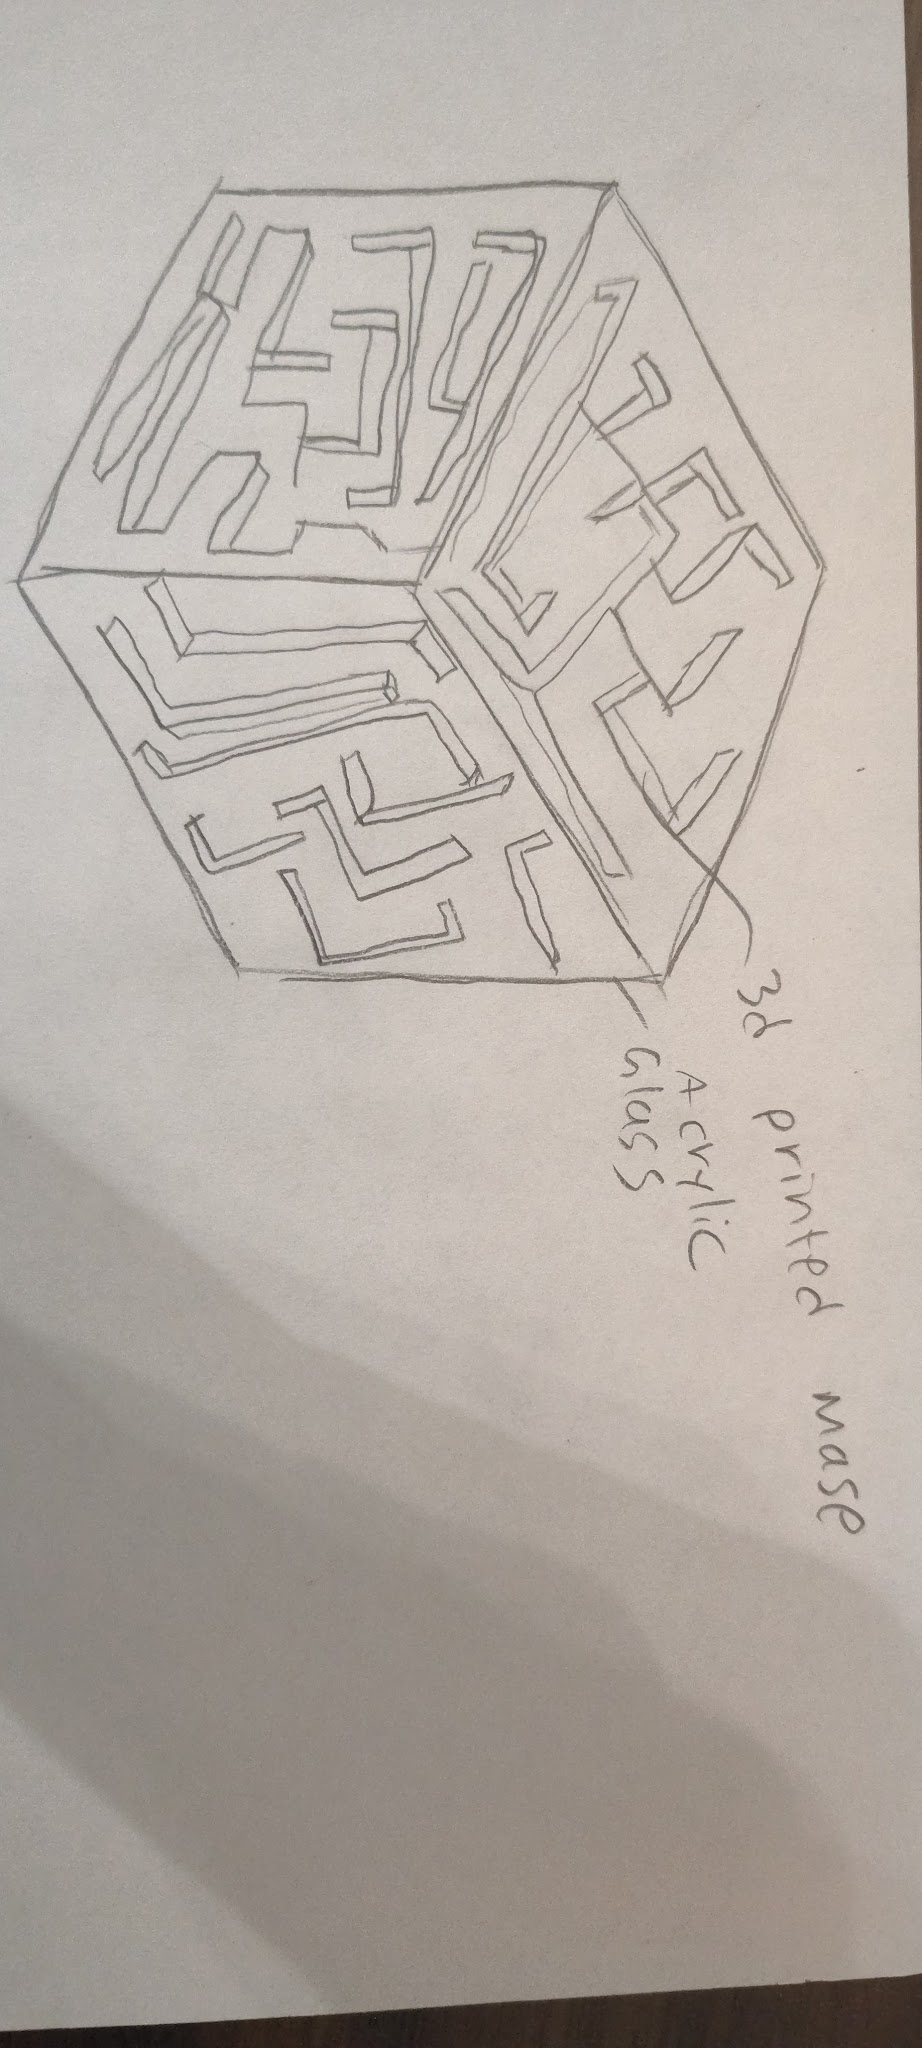 3d printed mase
Acrylic
Glass